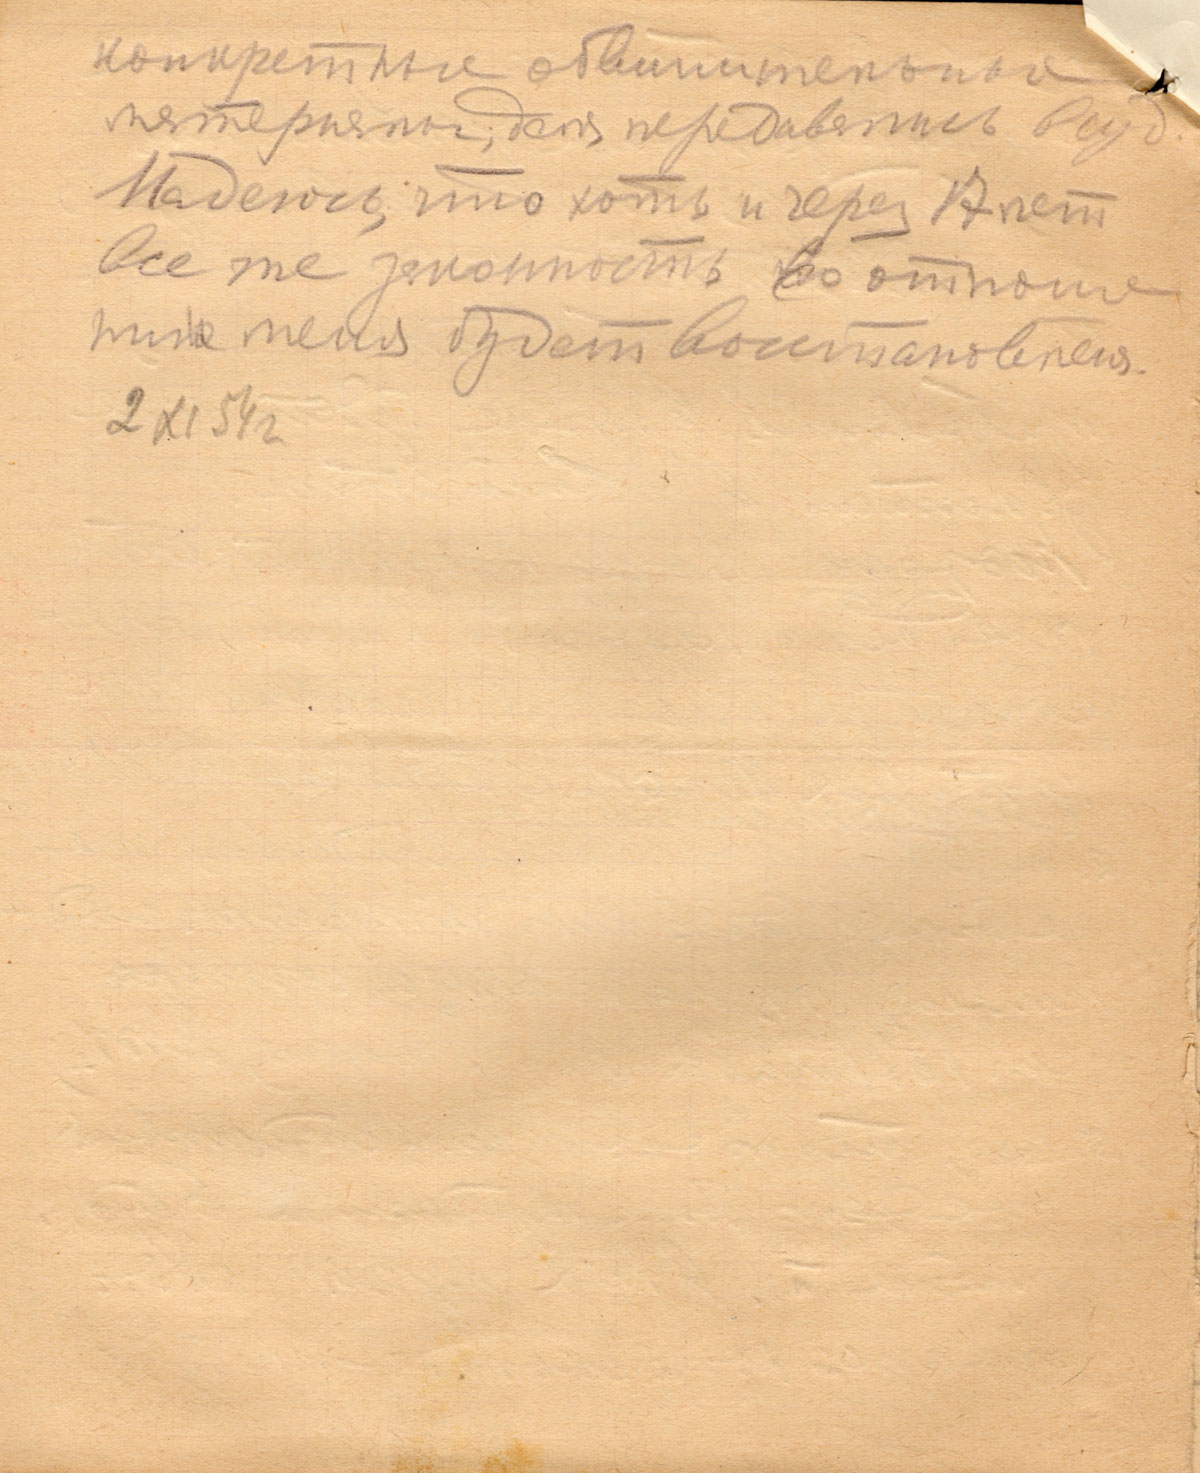 конкретные обвинительные
материалы, дела передавались в суд.
Надеюсь, что хоть и через 17 лет
все же законность по отноше
нию меня будет восстановлена.
2 XI 54 г